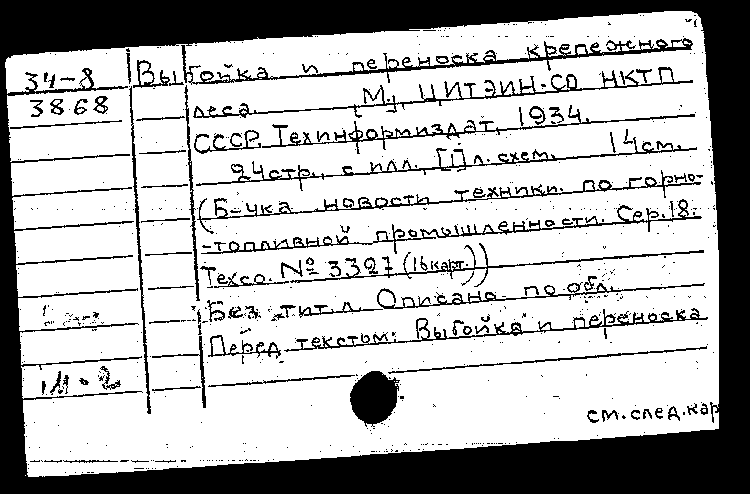 34-8
3868
Выбойка и переноска крепежного
леса. [М.], ЦИТЭИН-СО НКТП
СССР, Техинформиздат, 1934.
24стр., с илл., [1]л.схем. 14см.
(Б-чка новости техники. по горно-
-топливной промышленности. Сер.18.
Техсо. № 3327 (16карт.))
Без тит.л. Описано по обл.
Перед текстом: Выбойка и переноска
см.след.кар